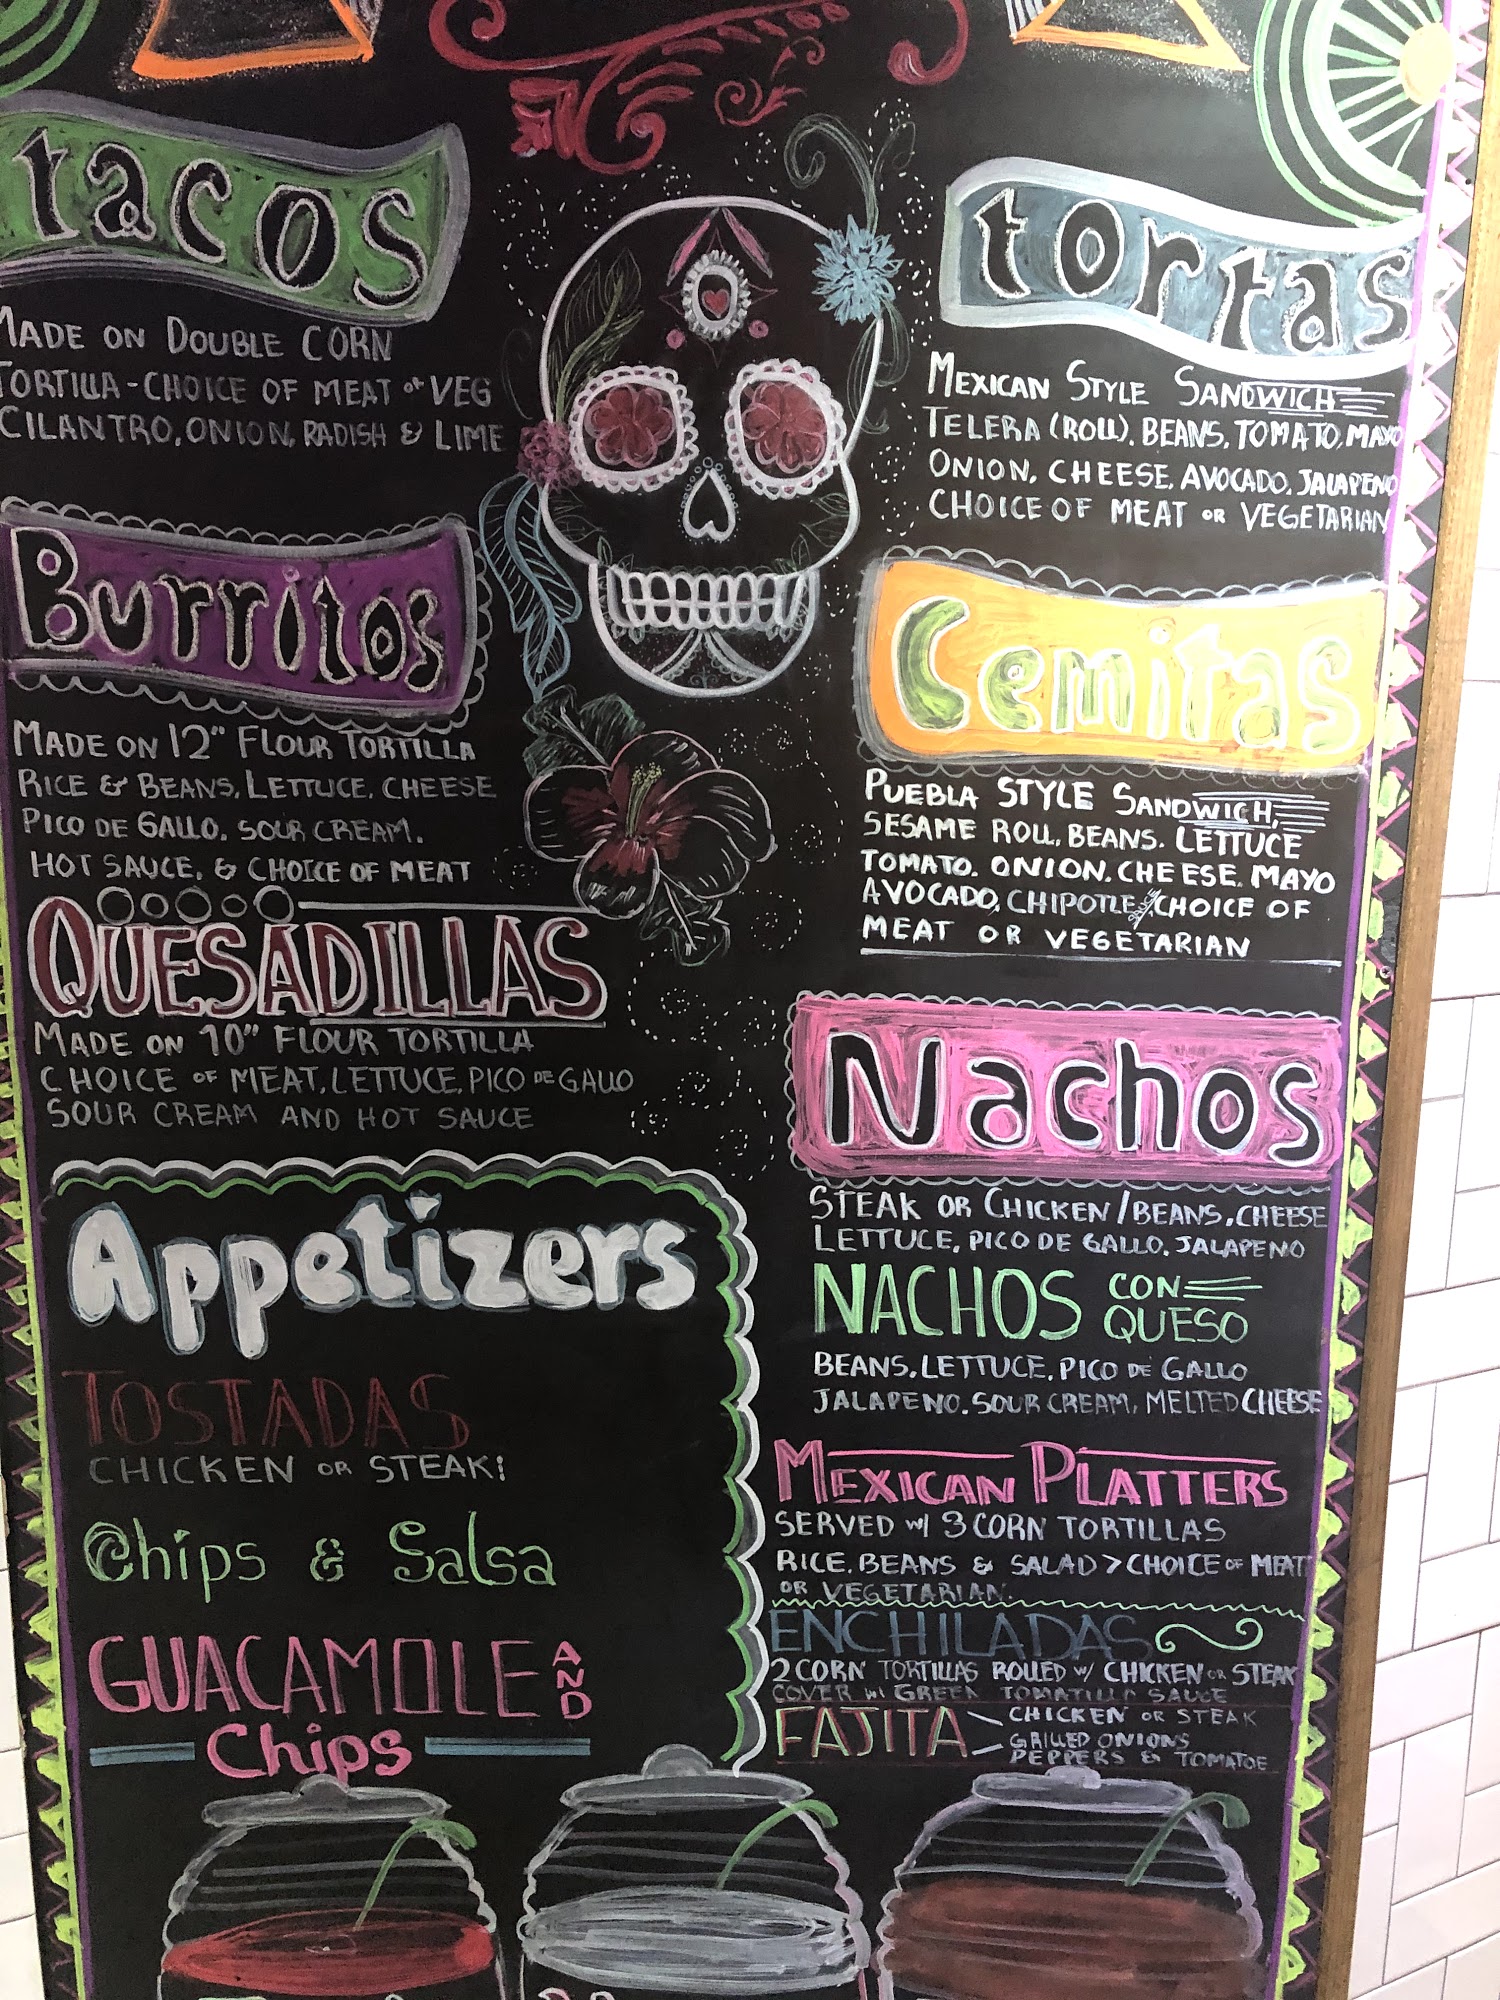 tacos
MADE ON DOUBLE CORN
TORTILLA - CHOICE OF MEAT or VEG
CILANTRO, ONION, RADISH & LIME
Burritos
MADE ON 12" FLOUR TORTILLA
RICE & BEANS, LETTUCE, CHEESE
PICO DE GALLO, SOUR CREAM,
HOT SAUCE, & CHOICE OF MEAT
QUESADILLAS
MADE ON 10" FLOUR TORTILLA
CHOICE OF MEAT, LETTUCE, PICO DE GALLO
SOUR CREAM AND HOT SAUCE
Appetizers
TOSTADAS
CHICKEN OR STEAK!
Chips & Salsa
GUACAMOLE AND
Chips
tortas
MEXICAN STYLE SANDWICH
TELERA (ROLL), BEANS, TOMATO, MAYO
ONION, CHEESE, AVOCADO, JALAPENO
CHOICE OF MEAT OR VEGETARIAN
Cemitas
PUEBLA STYLE SANDWICH,
SESAME ROLL, BEANS, LETTUCE
TOMATO, ONION, CHEESE, MAYO
AVOCADO, CHIPOTLE SAUCE, CHOICE OF
MEAT OR VEGETARIAN
Nachos
STEAK OR CHICKEN / BEANS, CHEESE
LETTUCE, PICO DE GALLO, JALAPENO
NACHOS CON
QUESO
BEANS, LETTUCE, PICO DE GALLO
JALAPENO, SOUR CREAM, MELTED CHEESE
MEXICAN PLATTERS
SERVED w/ 3 CORN TORTILLAS
RICE, BEANS & SALAD > CHOICE OF MEAT
OR VEGETARIAN
ENCHILADAS
2 CORN TORTILLAS ROLLED w/ CHICKEN OR STEAK
COVER w/ GREEN TOMATILLO SAUCE
FAJITA CHICKEN OR STEAK
GRILLED ONIONS
PEPPERS & TOMATOE